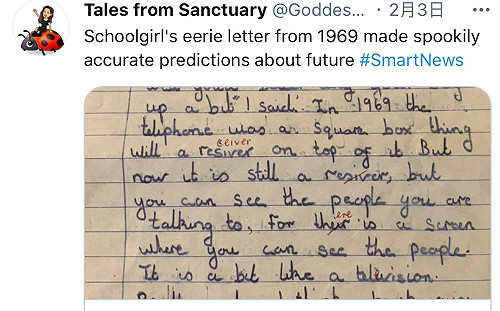 Tales from Sanctuary @Goddes... · 2月3日
Schoolgirl's eerie letter from 1969 made spookily
accurate predictions about future #SmartNews
up a bit" I said. In 1969 the
telephone was a square box thing
ceiver
will a resiver on top of it But
now it is still a resiver, but
you can see the people you are
ere
talking to, For their is a screen
where you can see the people.
It is a bit like a television.